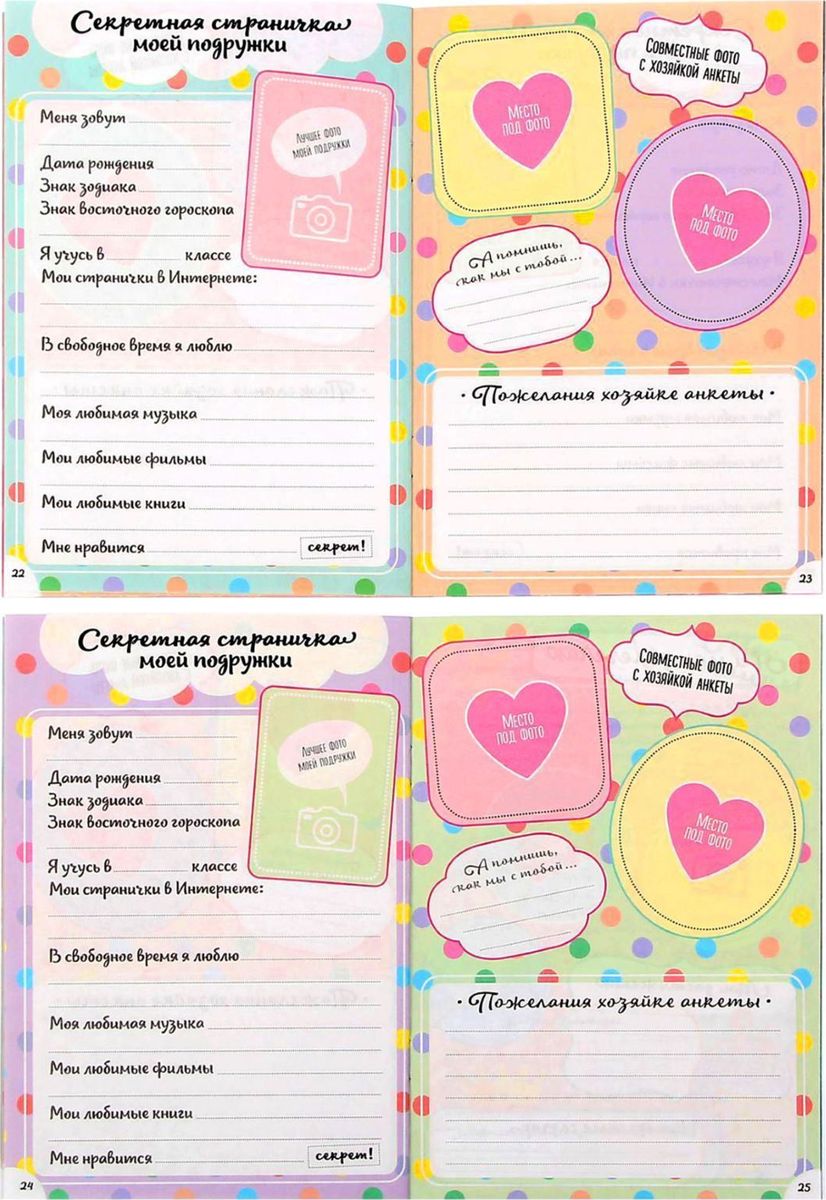 Секретная страничка
моей подружки
Меня зовут
Дата рождения
Знак зодиака
Знак восточного гороскопа
Я учусь в классе
Мои странички в Интернете:
В свободное время я люблю
Моя любимая музыка
Мои любимые фильмы
Мои любимые книги
Мне нравится секрет!
Лучшее фото
моей подружки
22
Место
под фото
Совместные фото
с хозяйкой анкеты
Место
под фото
А помнишь,
как мы с тобой...
· Пожелания хозяйке анкеты ·
23
Секретная страничка
моей подружки
Меня зовут
Дата рождения
Знак зодиака
Знак восточного гороскопа
Я учусь в классе
Мои странички в Интернете:
В свободное время я люблю
Моя любимая музыка
Мои любимые фильмы
Мои любимые книги
Мне нравится секрет!
Лучшее фото
моей подружки
24
Место
под фото
Совместные фото
с хозяйкой анкеты
Место
под фото
А помнишь,
как мы с тобой...
· Пожелания хозяйке анкеты ·
25